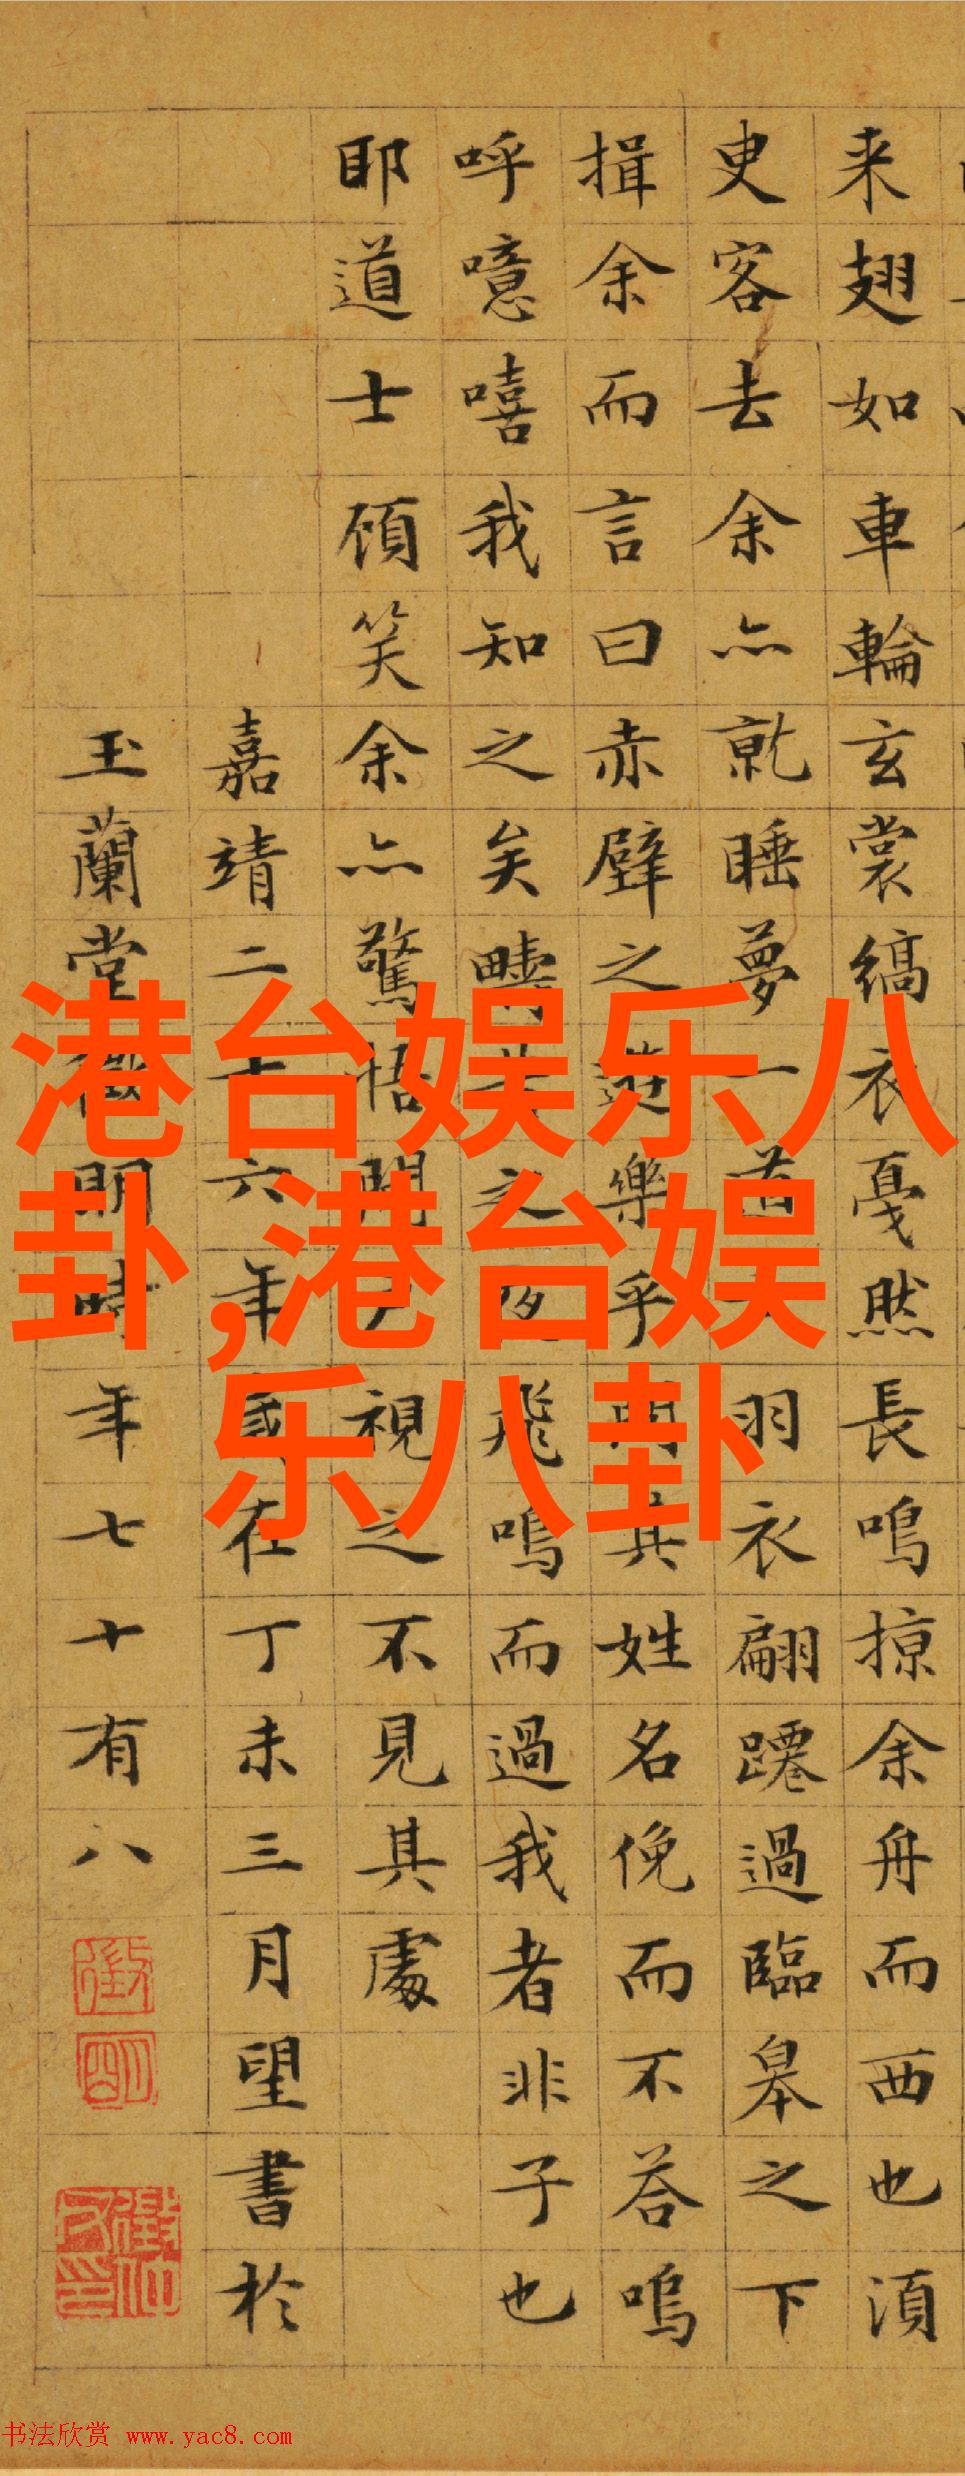 来翅如車輪玄裳縞衣戛然長鳴掠余舟而西也湏
臾客去余亦就睡夢一道羽衣翩躚過臨皋之下
揖余而言曰赤壁之遊樂乎問其姓名俛而不荅嗚
呼噫嘻我知之矣疇昔之夜飛鳴而過我者非子也
耶道士顧笑余亦驚悟開戶視之不見其處
嘉靖二十六年歲在丁未三月望書於
玉蘭堂徵明時年七十有八
港台娱乐八
卦,港台娱
乐八卦
书法欣赏 www.yac8.com